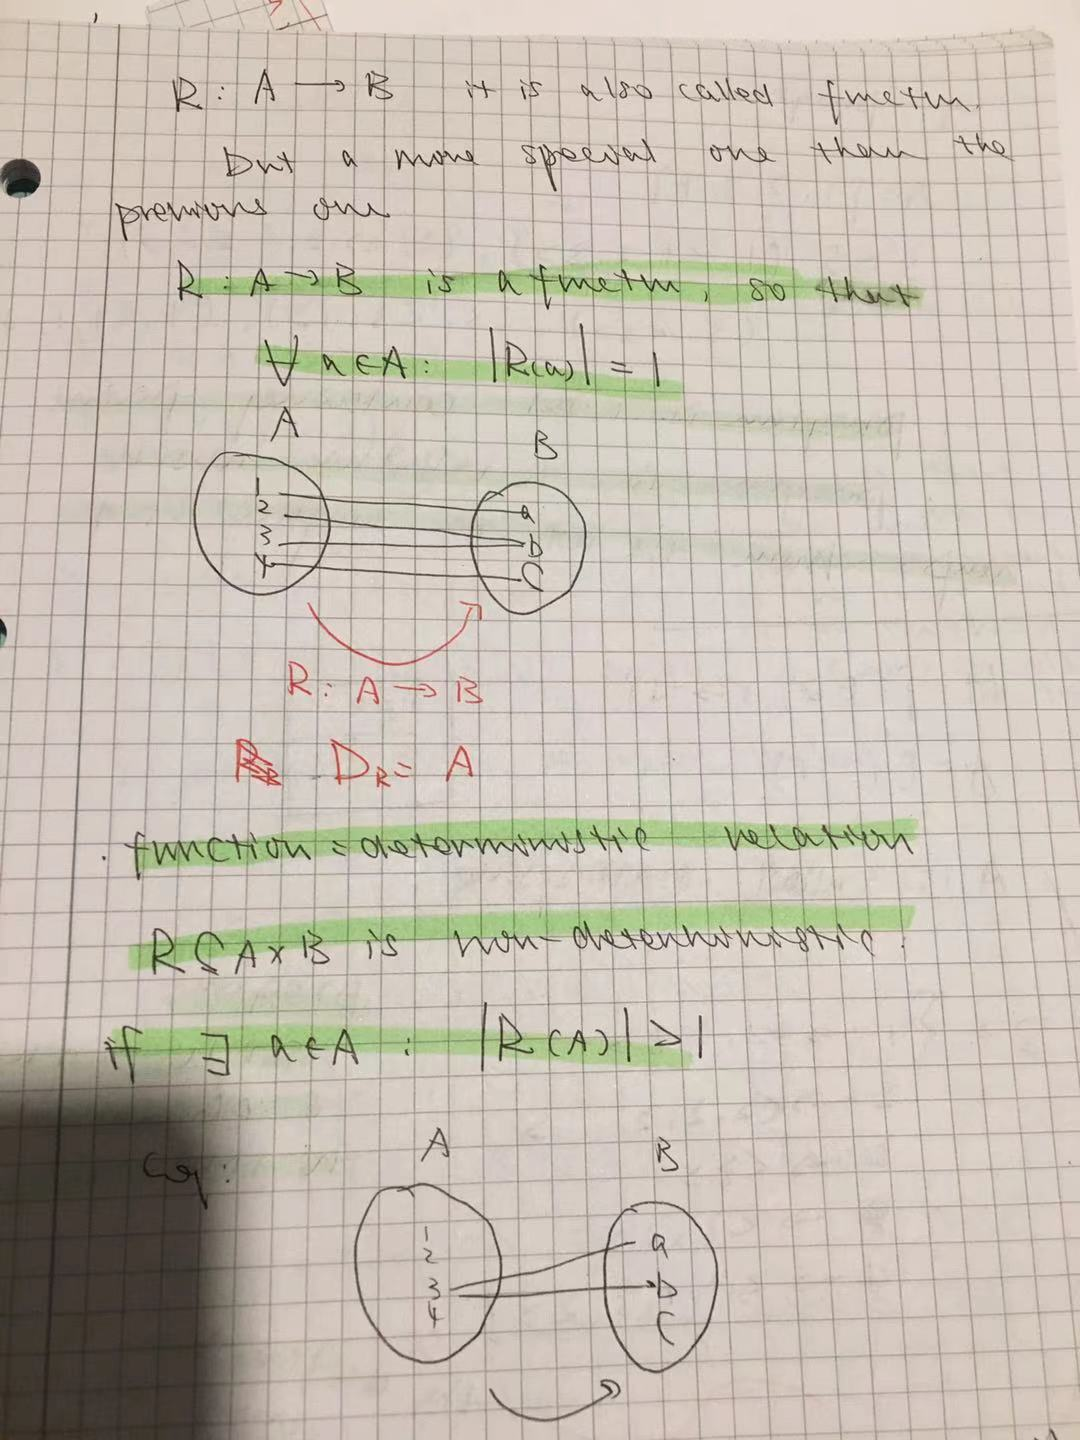 R : A → B it is also called function.
But a more special one than the
previous one
R : A → B is a function, so that
∀ a ∈ A : |R(a)| = 1
A B
1 a
2 b
3 C
4
R : A → B
D_R = A
function = deterministic relation
R ⊆ A × B is non-deterministic.
if ∃ a ∈ A : |R(A)| > 1
A B
1 a
2 b
3 C
4